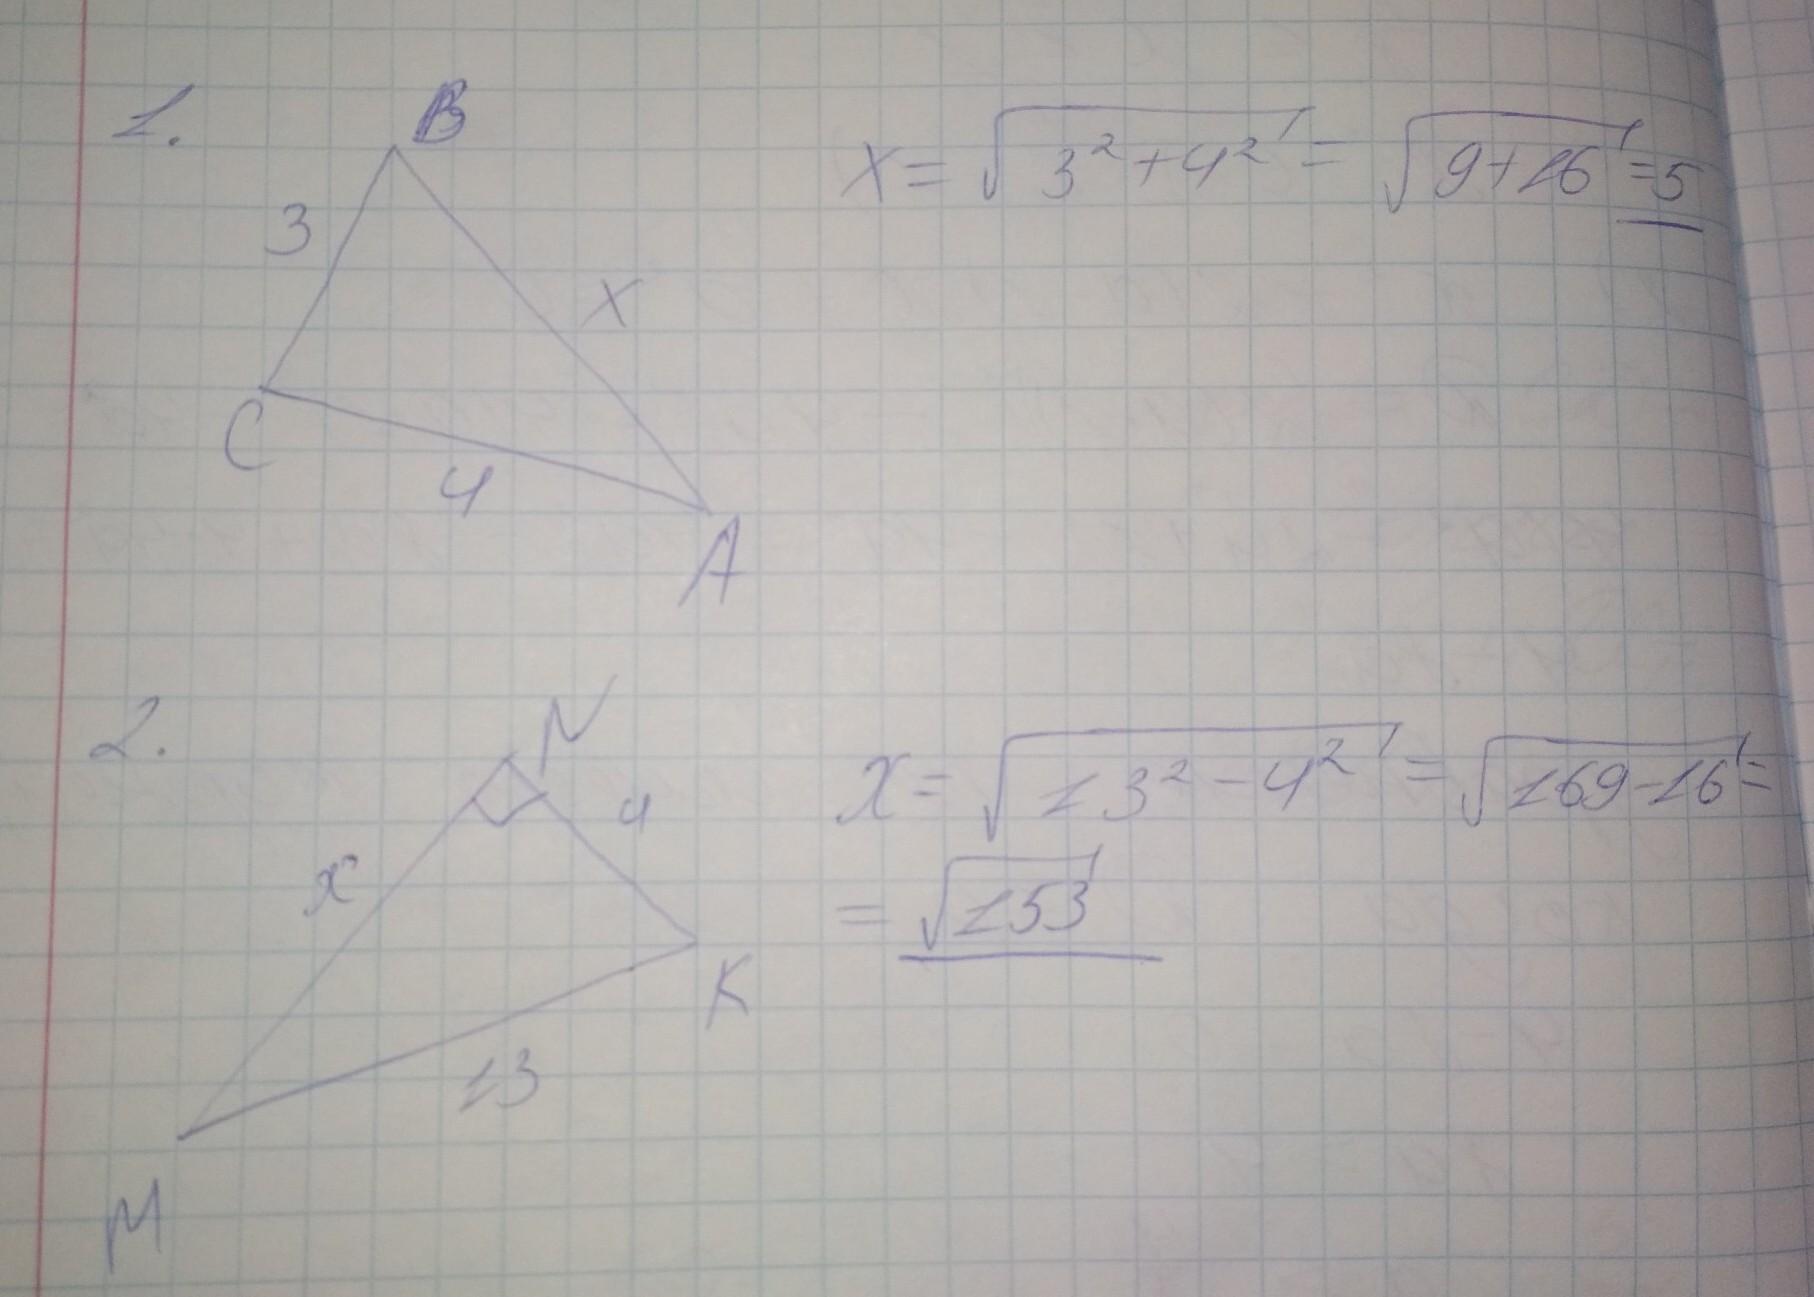 1.
B
3
x
C
4
A
x = √3² + 4² = √9 + 16 = 5
2.
N
4
x
K
13
M
x = √13² - 4² = √169 - 16 =
= √153